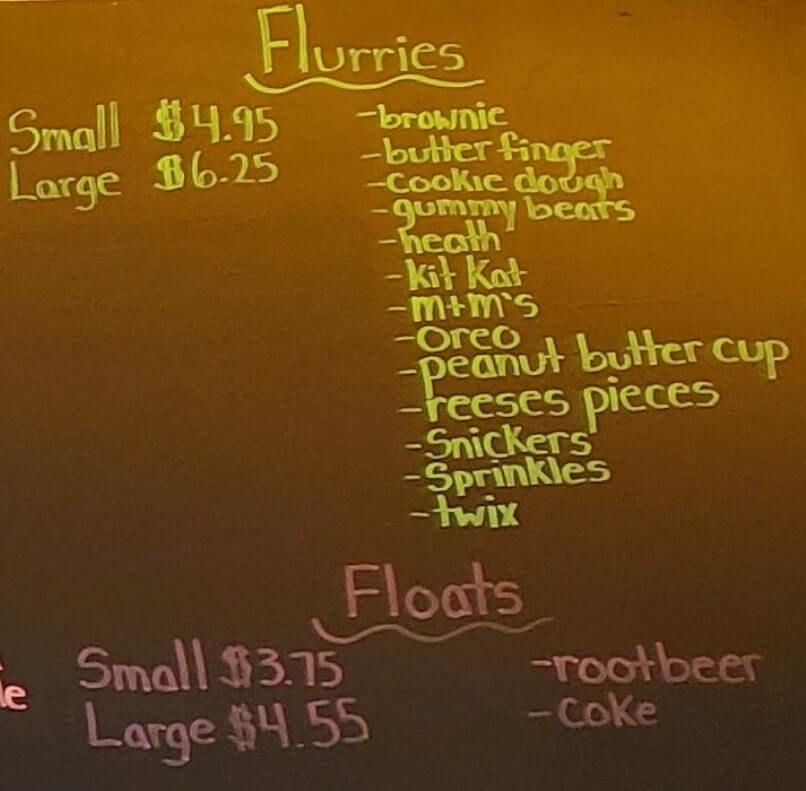 Flurries
Small $4.95
Large $6.25
-brownie
-butter finger
-cookie dough
-gummy bears
-heath
-kit Kat
-m+m's
-oreo
-peanut butter cup
-reeses pieces
-Snickers
-Sprinkles
-twix
Floats
Small $3.75
Large $4.55
-rootbeer
-coke